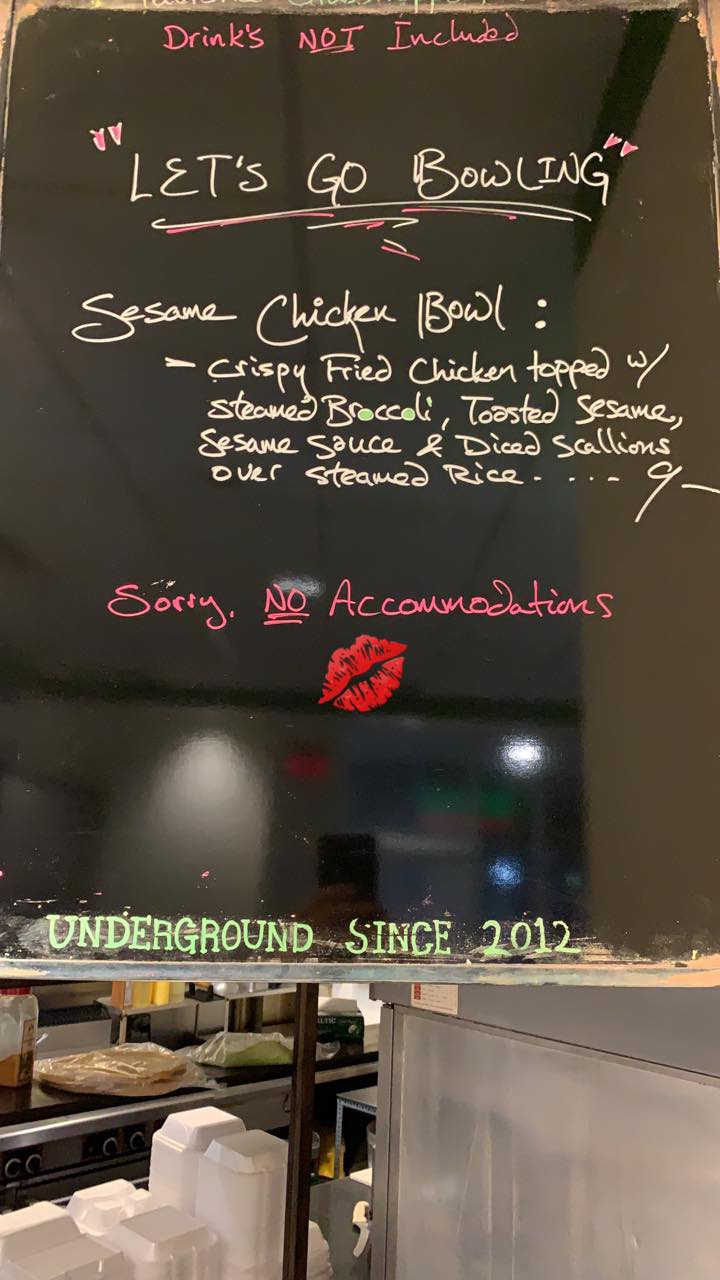 Drink's NOT Included
"LET'S GO BOWLING"
Sesame Chicken Bowl :
- Crispy Fried Chicken topped w/
steamed Broccoli, Toasted Sesame,
Sesame Sauce & Diced Scallions
over steamed Rice. .... 9/-
Sorry, NO Accommodations
UNDERGROUND SINCE 2012